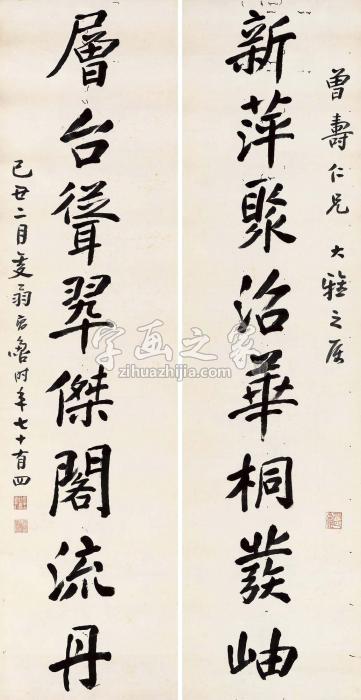 曾壽仁兄 大雅之屬
新萍聚沼華桐發岫
層台聳翠傑閣流丹
己丑二月 翁 魯时年七十有四
字画之家
zihuazhijia.com